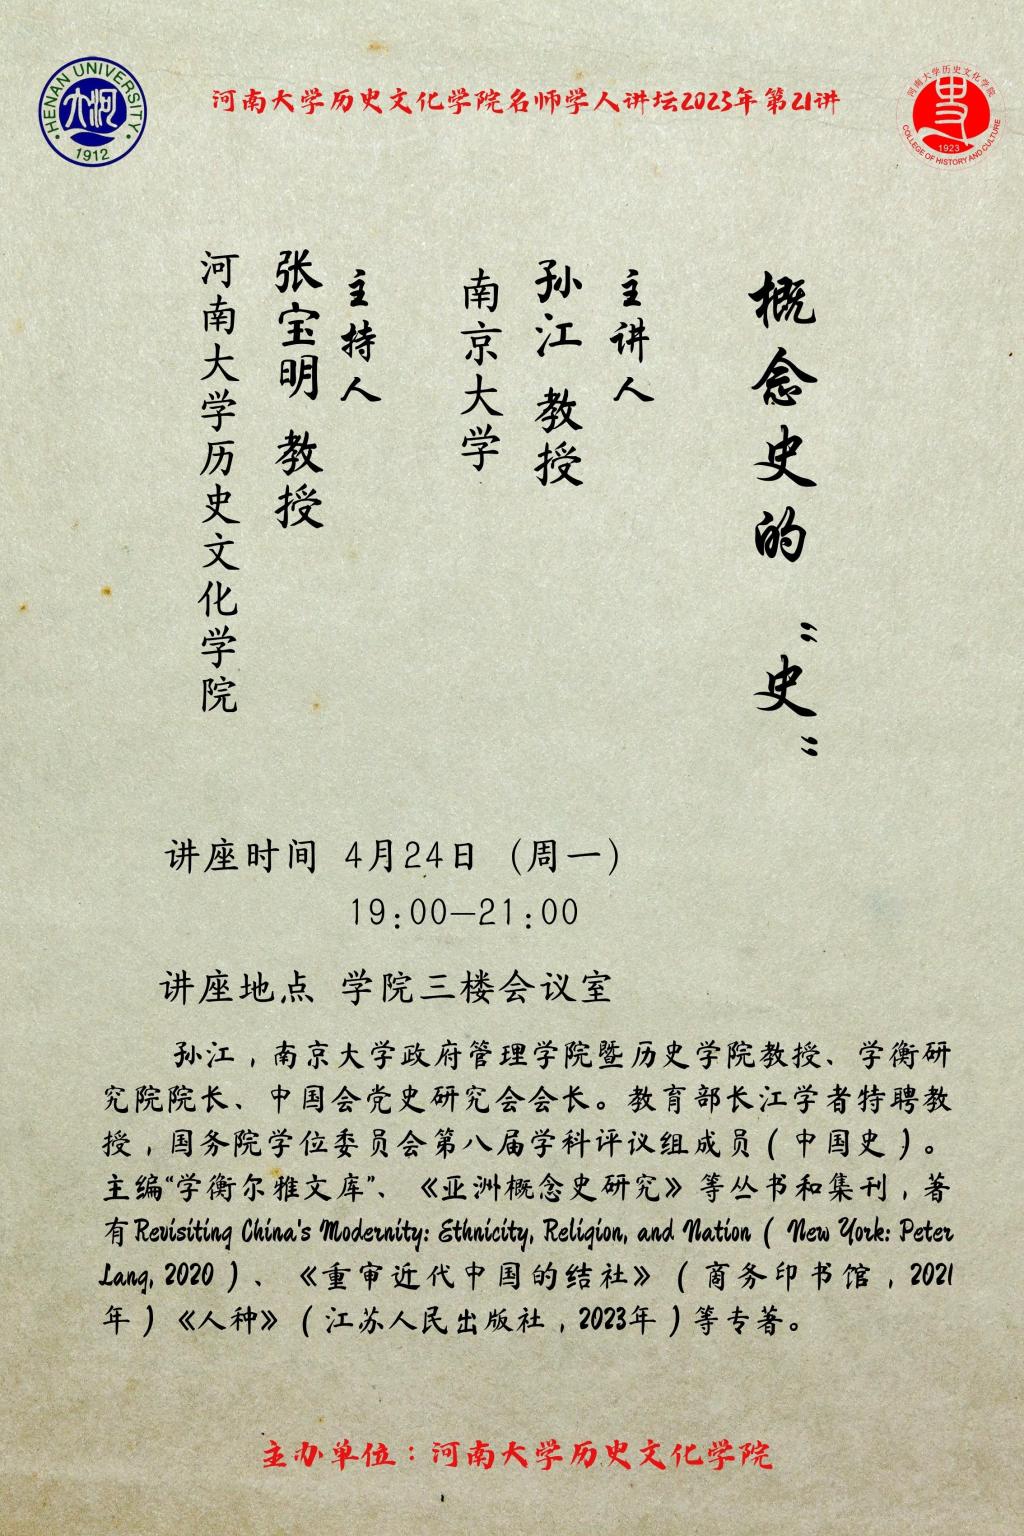 河南大学历史文化学院名师学人讲坛2023年第21讲
HENAN UNIVERSITY
大河
1912
河南大学历史文化学院
史
1923
COLLEGE OF HISTORY AND CULTURE
概念史的“史”
主讲人
孙江 教授
南京大学
主持人
张宝明 教授
河南大学历史文化学院
讲座时间 4月24日（周一）
19:00—21:00
讲座地点 学院三楼会议室
孙江，南京大学政府管理学院暨历史学院教授、学衡研
究院院长、中国会党史研究会会长。教育部长江学者特聘教
授，国务院学位委员会第八届学科评议组成员（中国史）。
主编“学衡尔雅文库”、《亚洲概念史研究》等丛书和集刊，著
有Revisiting China's Modernity: Ethnicity, Religion, and Nation（ New York: Peter
Lang, 2020 ）、《重审近代中国的结社》（商务印书馆，2021
年）《人种》（江苏人民出版社，2023年）等专著。
主办单位：河南大学历史文化学院